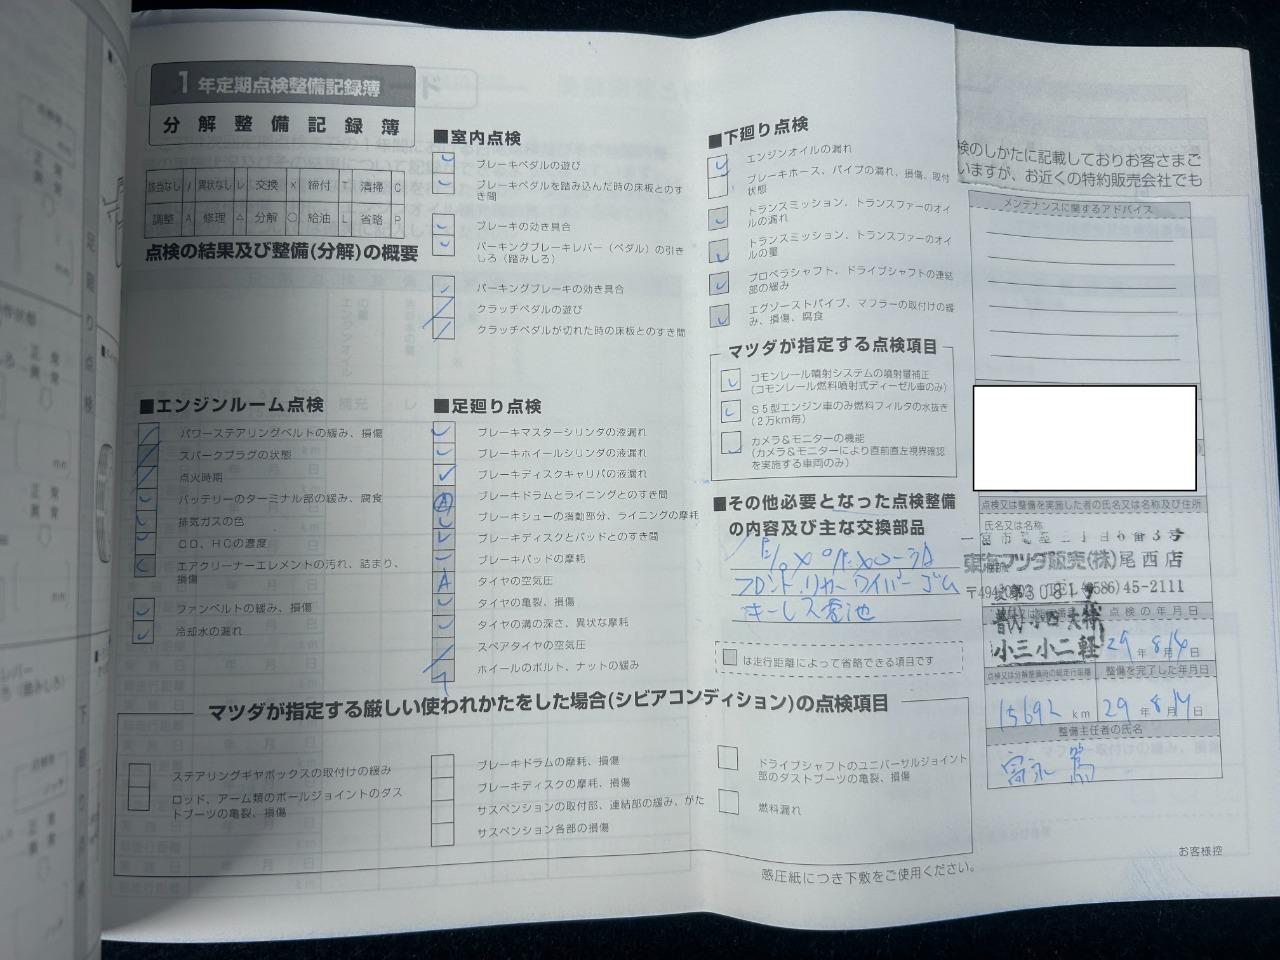 1年定期点検整備記録簿
分解整備記録簿
該当なし / 異状なし レ 交換 × 締付 T 清掃 C
調整 A 修理 △ 分解 ○ 給油 L 省略 P
点検の結果及び整備(分解)の概要
■エンジンルーム点検
パワーステアリングベルトの緩み、損傷
スパークプラグの状態
点火時期
バッテリーのターミナル部の緩み、腐食
排気ガスの色
CO、HCの濃度
エアクリーナーエレメントの汚れ、詰まり、
損傷
ファンベルトの緩み、損傷
冷却水の漏れ
■室内点検
ブレーキペダルの遊び
ブレーキペダルを踏み込んだ時の床板とのす
き間
ブレーキの効き具合
パーキングブレーキレバー(ペダル)の引き
しろ(踏みしろ)
パーキングブレーキの効き具合
クラッチペダルの遊び
クラッチペダルが切れた時の床板とのすき間
■足廻り点検
ブレーキマスターシリンダの液漏れ
ブレーキホイールシリンダの液漏れ
ブレーキディスクキャリパの液漏れ
ブレーキドラムとライニングとのすき間
ブレーキシューの摺動部分、ライニングの摩耗
ブレーキディスクとパッドとのすき間
ブレーキパッドの摩耗
タイヤの空気圧
タイヤの亀裂、損傷
タイヤの溝の深さ、異状な摩耗
スペアタイヤの空気圧
ホイールのボルト、ナットの緩み
■下廻り点検
エンジンオイルの漏れ
ブレーキホース、パイプの漏れ、損傷、取付
状態
トランスミッション、トランスファーのオイ
ルの漏れ
トランスミッション、トランスファーのオイ
ルの量
プロペラシャフト、ドライブシャフトの連結
部の緩み
エグゾーストパイプ、マフラーの取付けの緩
み、損傷、腐食
マツダが指定する点検項目
コモンレール噴射システムの噴射量補正
(コモンレール燃料噴射式ディーゼル車のみ)
S5型エンジン車のみ燃料フィルタの水抜き
(2万km毎)
カメラ&モニターの機能
(カメラ&モニターにより直前直左視界確認
を実施する車両のみ)
■その他必要となった点検整備
の内容及び主な交換部品
フロント、リヤーワイパーゴム
キーレス電池
は走行距離によって省略できる項目です
マツダが指定する厳しい使われかたをした場合(シビアコンディション)の点検項目
ステアリングギヤボックスの取付けの緩み
ロッド、アーム類のボールジョイントのダス
トブーツの亀裂、損傷
ブレーキドラムの摩耗、損傷
ブレーキディスクの摩耗、損傷
サスペンションの取付部、連結部の緩み、がた
サスペンション各部の損傷
ドライブシャフトのユニバーサルジョイント
部のダストブーツの亀裂、損傷
燃料漏れ
感圧紙につき下敷をご使用ください。
検のしかたに記載しておりお客さまご
いますが、お近くの特約販売会社でも
メンテナンスに関するアドバイス
点検又は整備を実施した者の氏名又は名称及び住所
氏名又は名称
東海マツダ販売(株)尾西店
点検の年月日
29年8月14日
点検又は分解整備時の総走行距離 整備を完了した年月日
15692 km 29年8月14日
整備主任者の氏名
お客様控